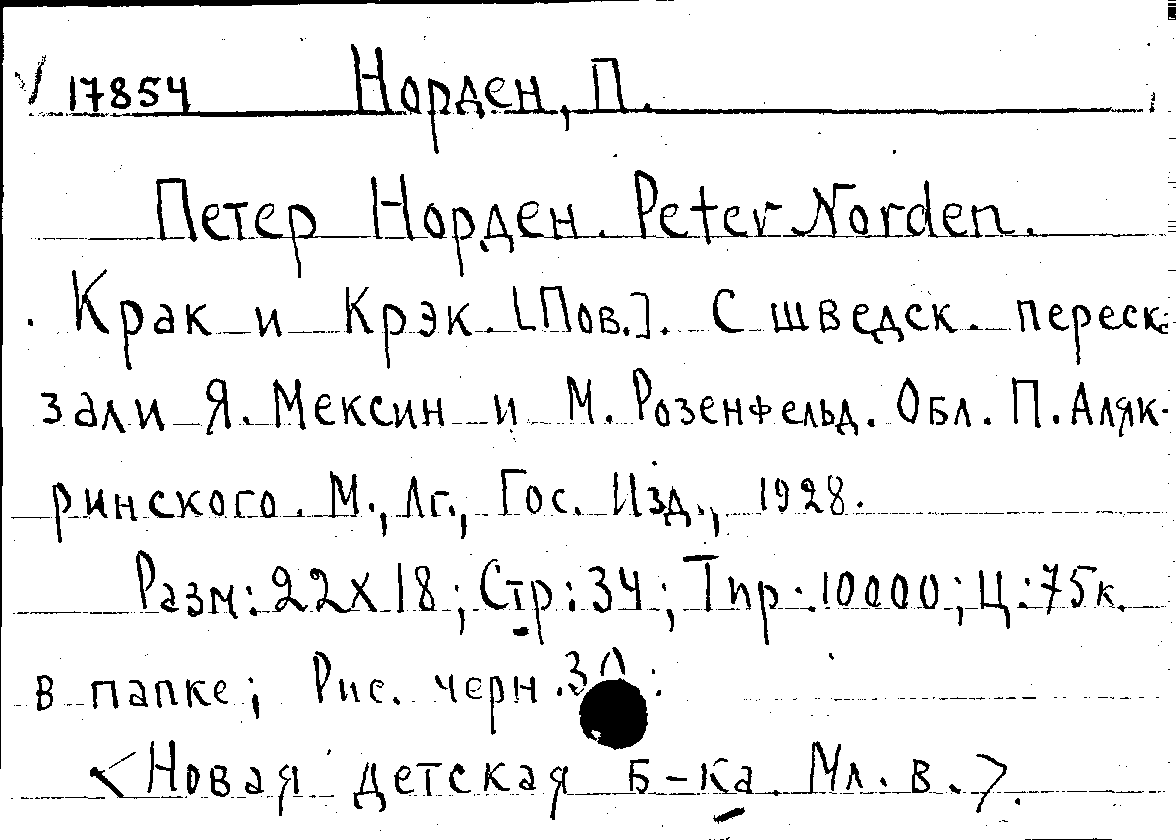 √ 17854 Норден, П.
Петер Норден. Peter Norden.
Крак и Крэк. [Пов.]. С шведск. переска-
зали Я. Мексин и М. Розенфельд. Обл. П. Аляк-
ринского. М., Лг., Гос. Изд., 1928.
Разм: 22х18; Стр: 34; Тир: 10000; Ц: 75к.
в папке; Рис. черн.
<Новая детская Б-ка Мл. в.>.